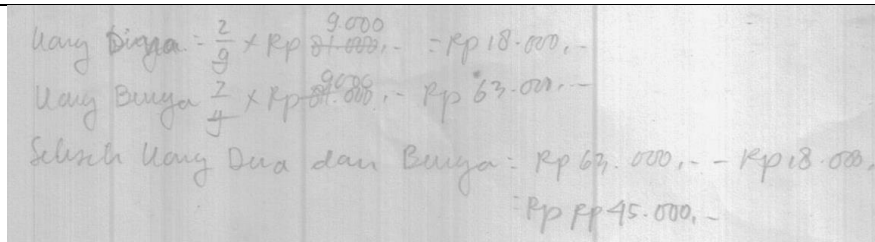 Uang Digya = 2/9 × Rp 81.000,- 9.000 = Rp 18.000,-
Uang Bunga 7/9 × Rp 81.000,- 9000 Rp 63.000,-
Selisih Uang Dua dan Bunga = Rp 63.000,- - Rp 18.000,
= Rp Rp 45.000,-